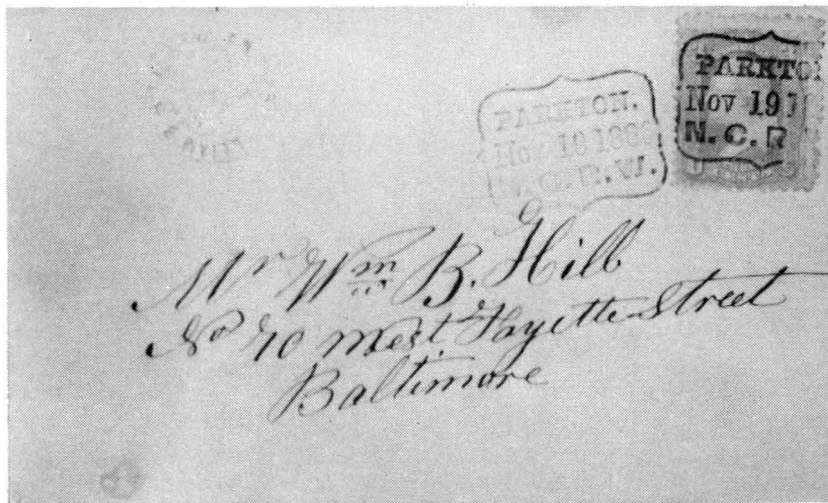 PARKTON.
Nov 19 186
N.C.R.W.
PARKTO
Nov 19 1
N.C.R
Mr Wm B. Hill
No 70 West Fayette Street
Baltimore